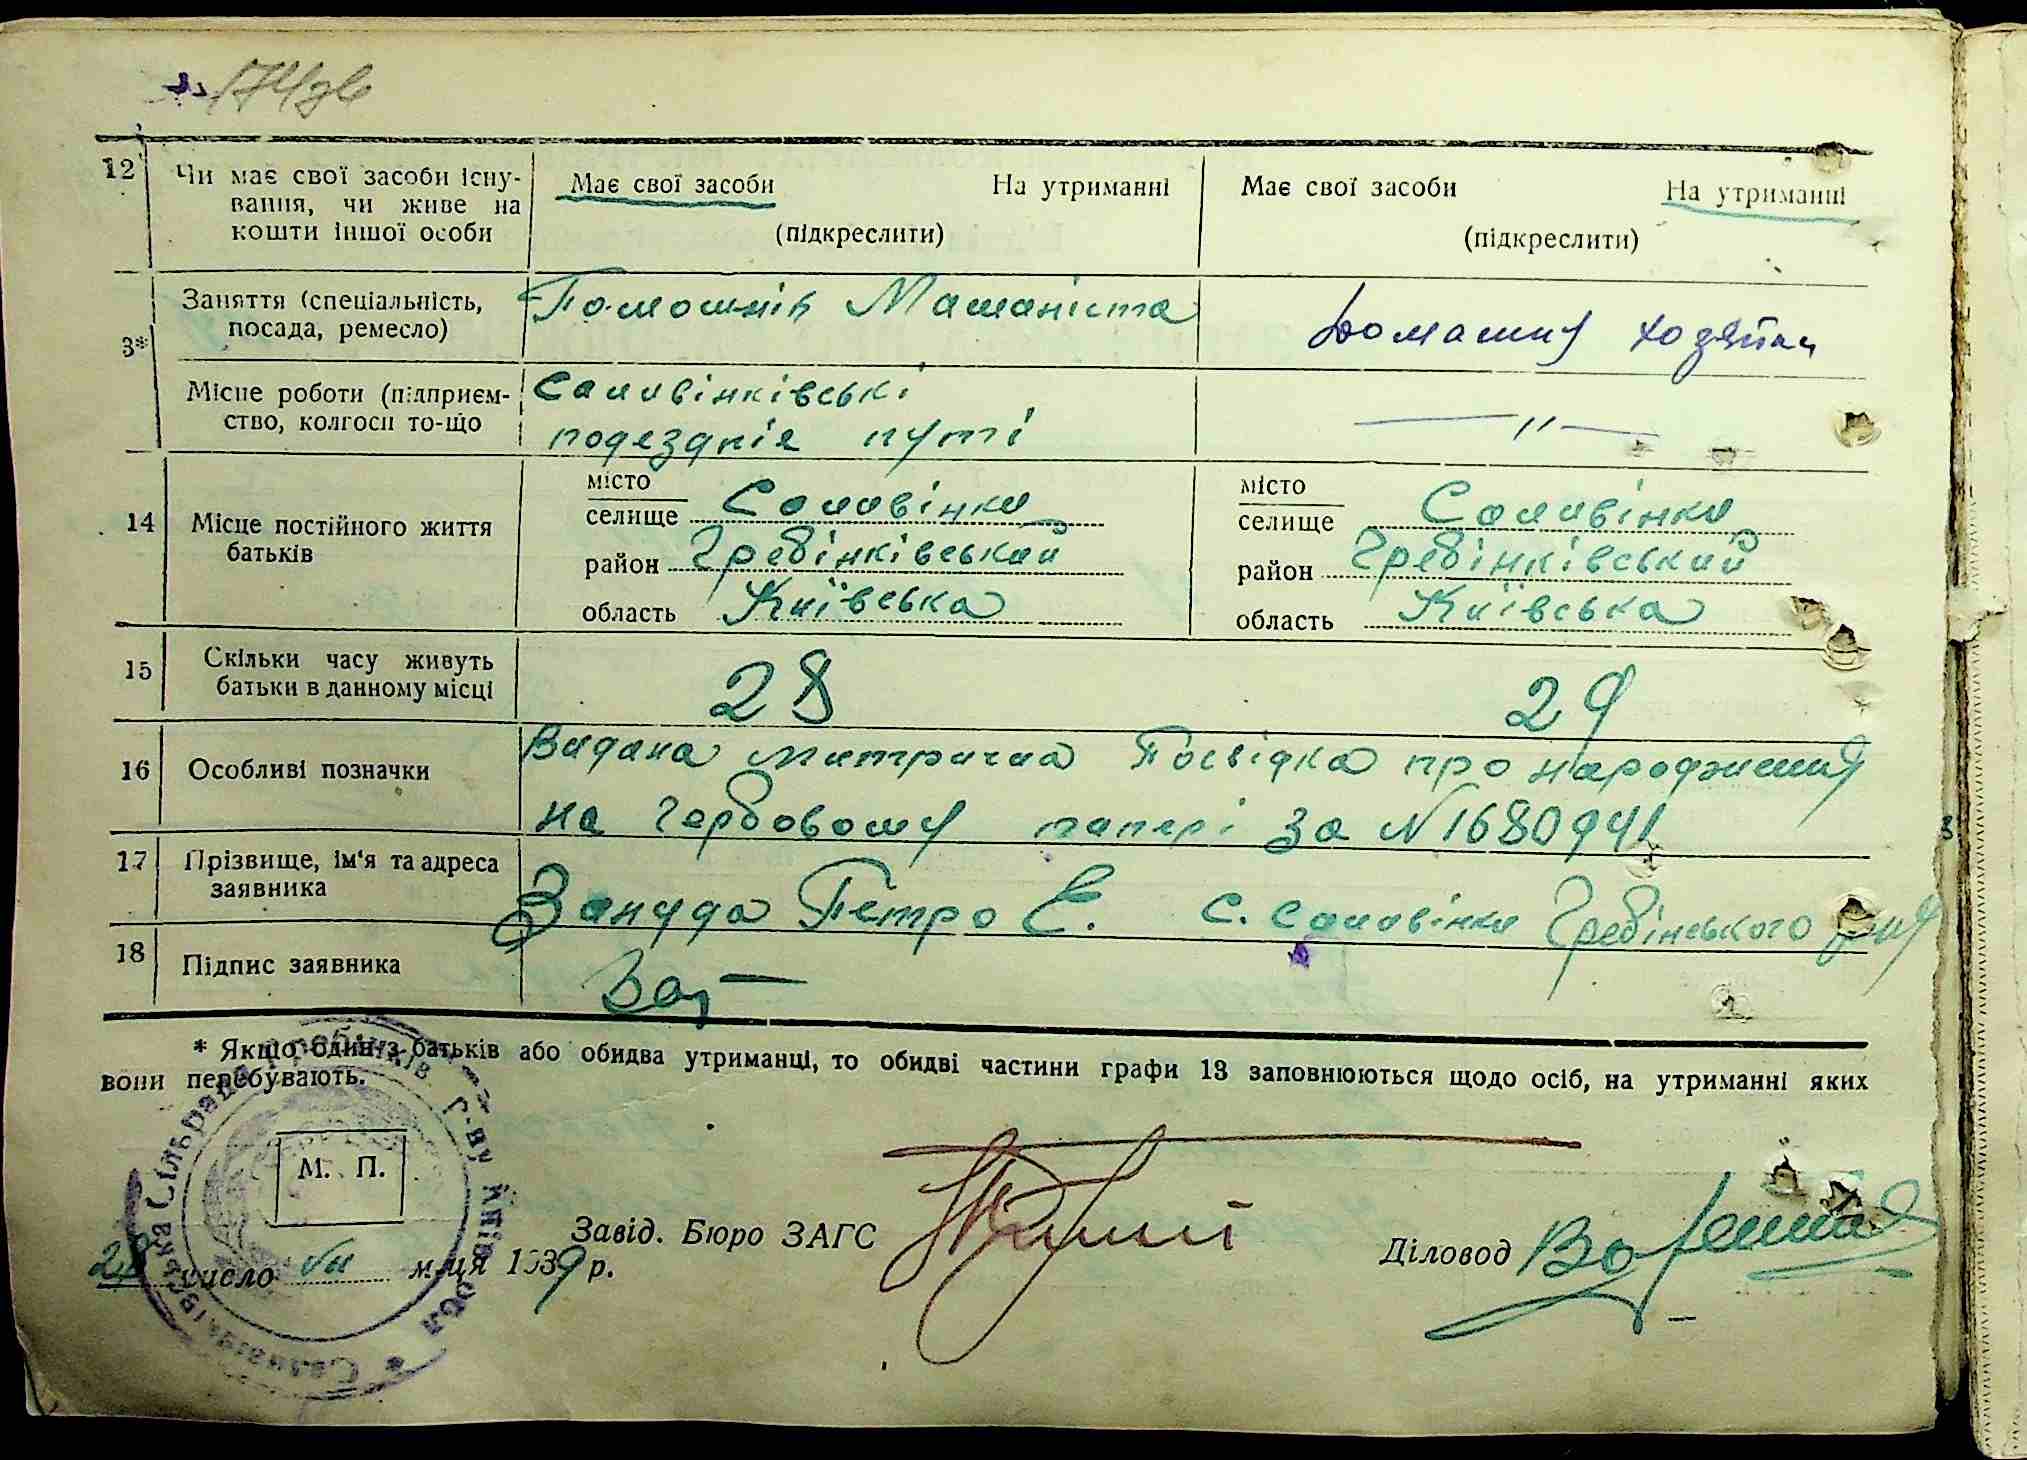 174зв
12 Чи має свої засоби існу-
вання, чи живе на
кошти іншої особи
Має свої засоби На утриманні
(підкреслити)
Має свої засоби На утриманні
(підкреслити)
3*
Заняття (спеціальність,
посада, ремесло)
Помошнік Машаніста
Домашня хозяйка
Місце роботи (підприєм-
ство, колгосп то-що
Саливінківські
подезднія путі
— " —
14 Місце постійного життя
батьків
місто
селище Саливінки
район Гребінківський
область Київська
місто
селище Саливінки
район Гребінківський
область Київська
15 Скільки часу живуть
батьки в данному місці
28
29
16 Особливі позначки
Видана митрична Посвідка про народження
на гербовому папері за N 1680941
17 Прізвище, ім'я та адреса
заявника
Зануда Петро Е. с. Саливінки Гребінського р-ну
18 Підпис заявника
* Якщо один з батьків або обидва утриманці, то обидві частини графи 13 заповнюються щодо осіб, на утриманні яких
вони перебувають.
М. П.
Завід. Бюро ЗАГС
Діловод
28 число VII м-ця 1939 р.
Саливінківська Сільрада Гребінків. Р-ну Київ обл